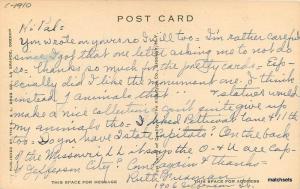 c-1910
POST CARD
Hi Pal=
You wrote on yours so I will too= I'm rather careful
since I got that one letter asking me to not do
so. Thanks so much for the pretty cards= Esp-
ecially did I like the monument one. I think
instead of animals that statues would
make a nice collection= Can't quite give up
my animals tho= I liked Pettivoal Lane #11
too= So you have 2 state capitols? On the back
of the Missouri it says the O & U are cap-
of Jefferson City? Come again & Thanks=
Ruth Brinkman
1906
THIS SPACE FOR MESSAGE
THIS SPACE FOR ADDRESS
matchsets